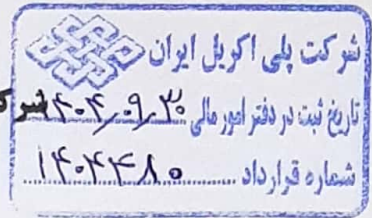 شرکت پلی اکریل ایران
تاریخ ثبت در دفتر امور مالی ۱۴۰۴/۰۹/۳۰
شماره قرارداد ........ ۱۴۰۴۴۸۵